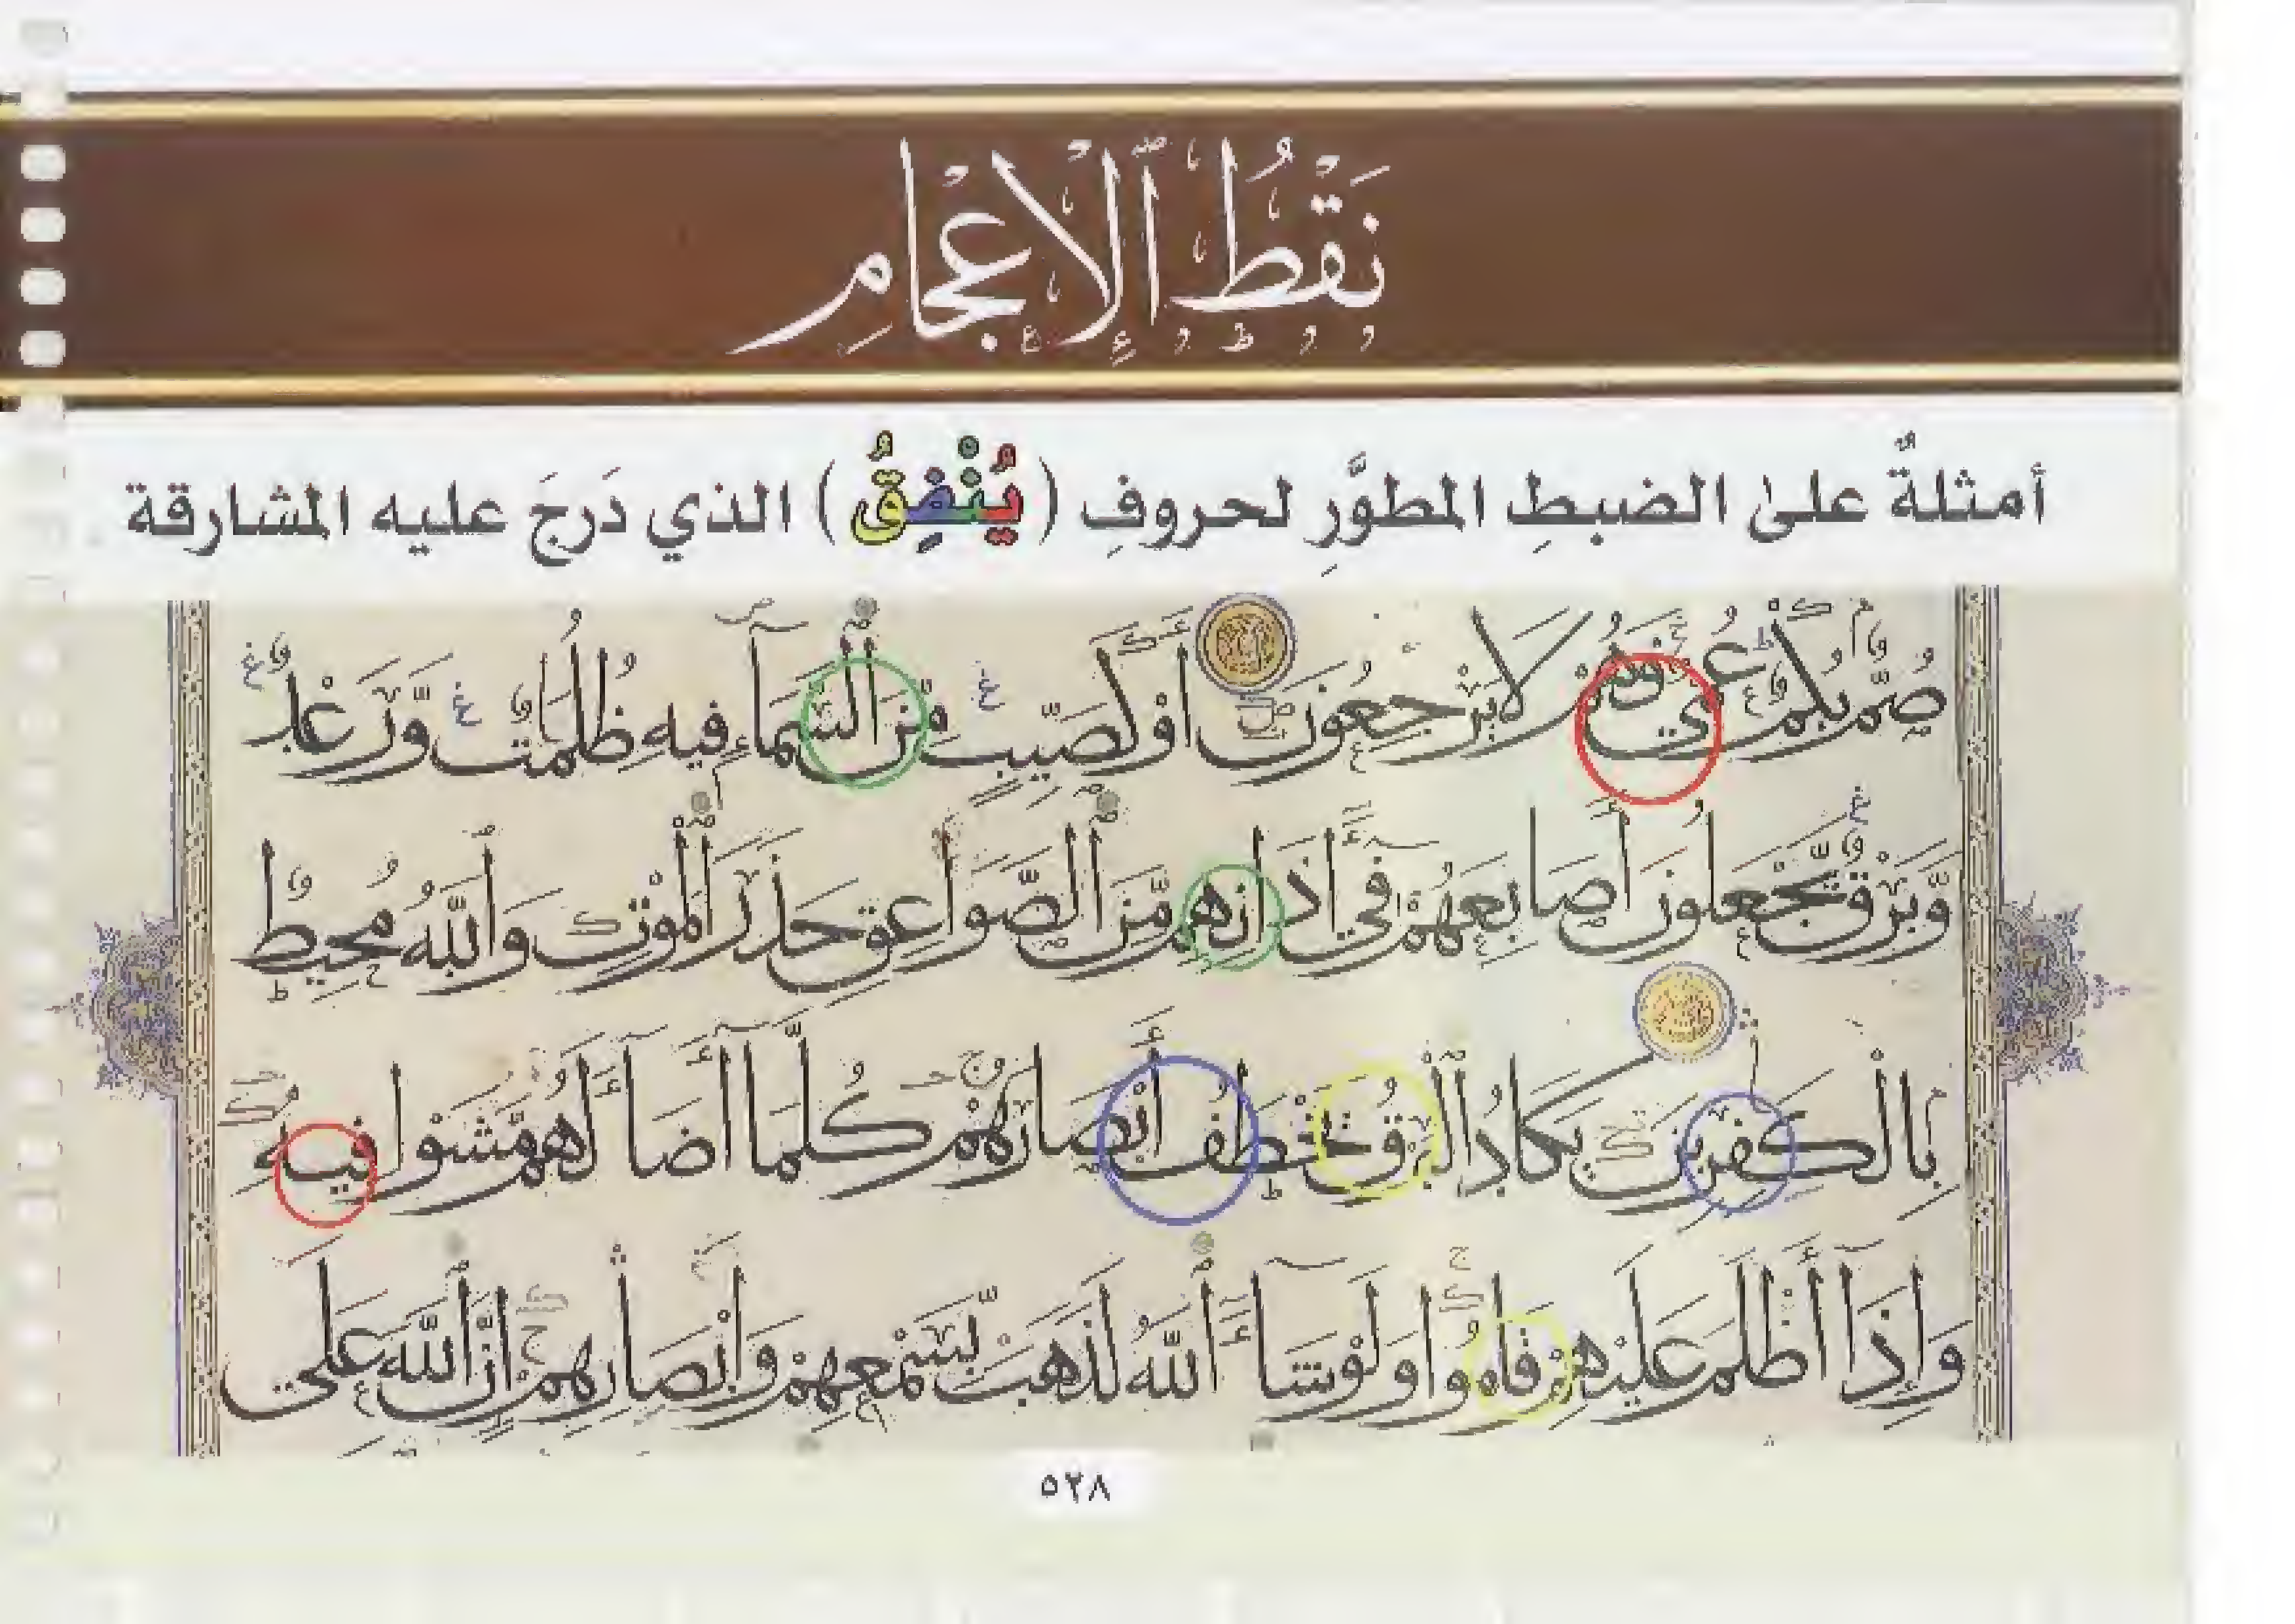 نَقْطُ ٱلْإِعْجَامِ
أمثلةٌ علىٰ الضبطِ المطوَّرِ لحروفِ (يُنْفِقُ) الذي دَرجَ عليه المشارقة
صُمٌّ بُكْمٌ عُمْىٌ فَهُمْ لَا يَرْجِعُونَ أَوْ كَصَيِّبٍ مِّنَ ٱلسَّمَآءِ فِيهِ ظُلُمَٰتٌ وَّرَعْدٌ
وَّبَرْقٌ يَّجْعَلُونَ أَصَابِعَهُمْ فِىٓ ءَاذَانِهِم مِّنَ ٱلصَّوَاعِقِ حَذَرَ ٱلْمَوْتِ وَٱللَّهُ مُحِيطٌ
بِالْكَٰفِرِينَ يَكَادُ ٱلْبَرْقُ يَخْطَفُ أَبْصَارَهُمْ كُلَّمَآ أَضَآءَ لَهُم مَّشَوْا فِيهِ
وَإِذَآ أَظْلَمَ عَلَيْهِمْ قَامُوا وَلَوْ شَآءَ ٱللَّهُ لَذَهَبَ بِسَمْعِهِمْ وَأَبْصَارِهِمْ إِنَّ ٱللَّهَ عَلَى
٥٢٨